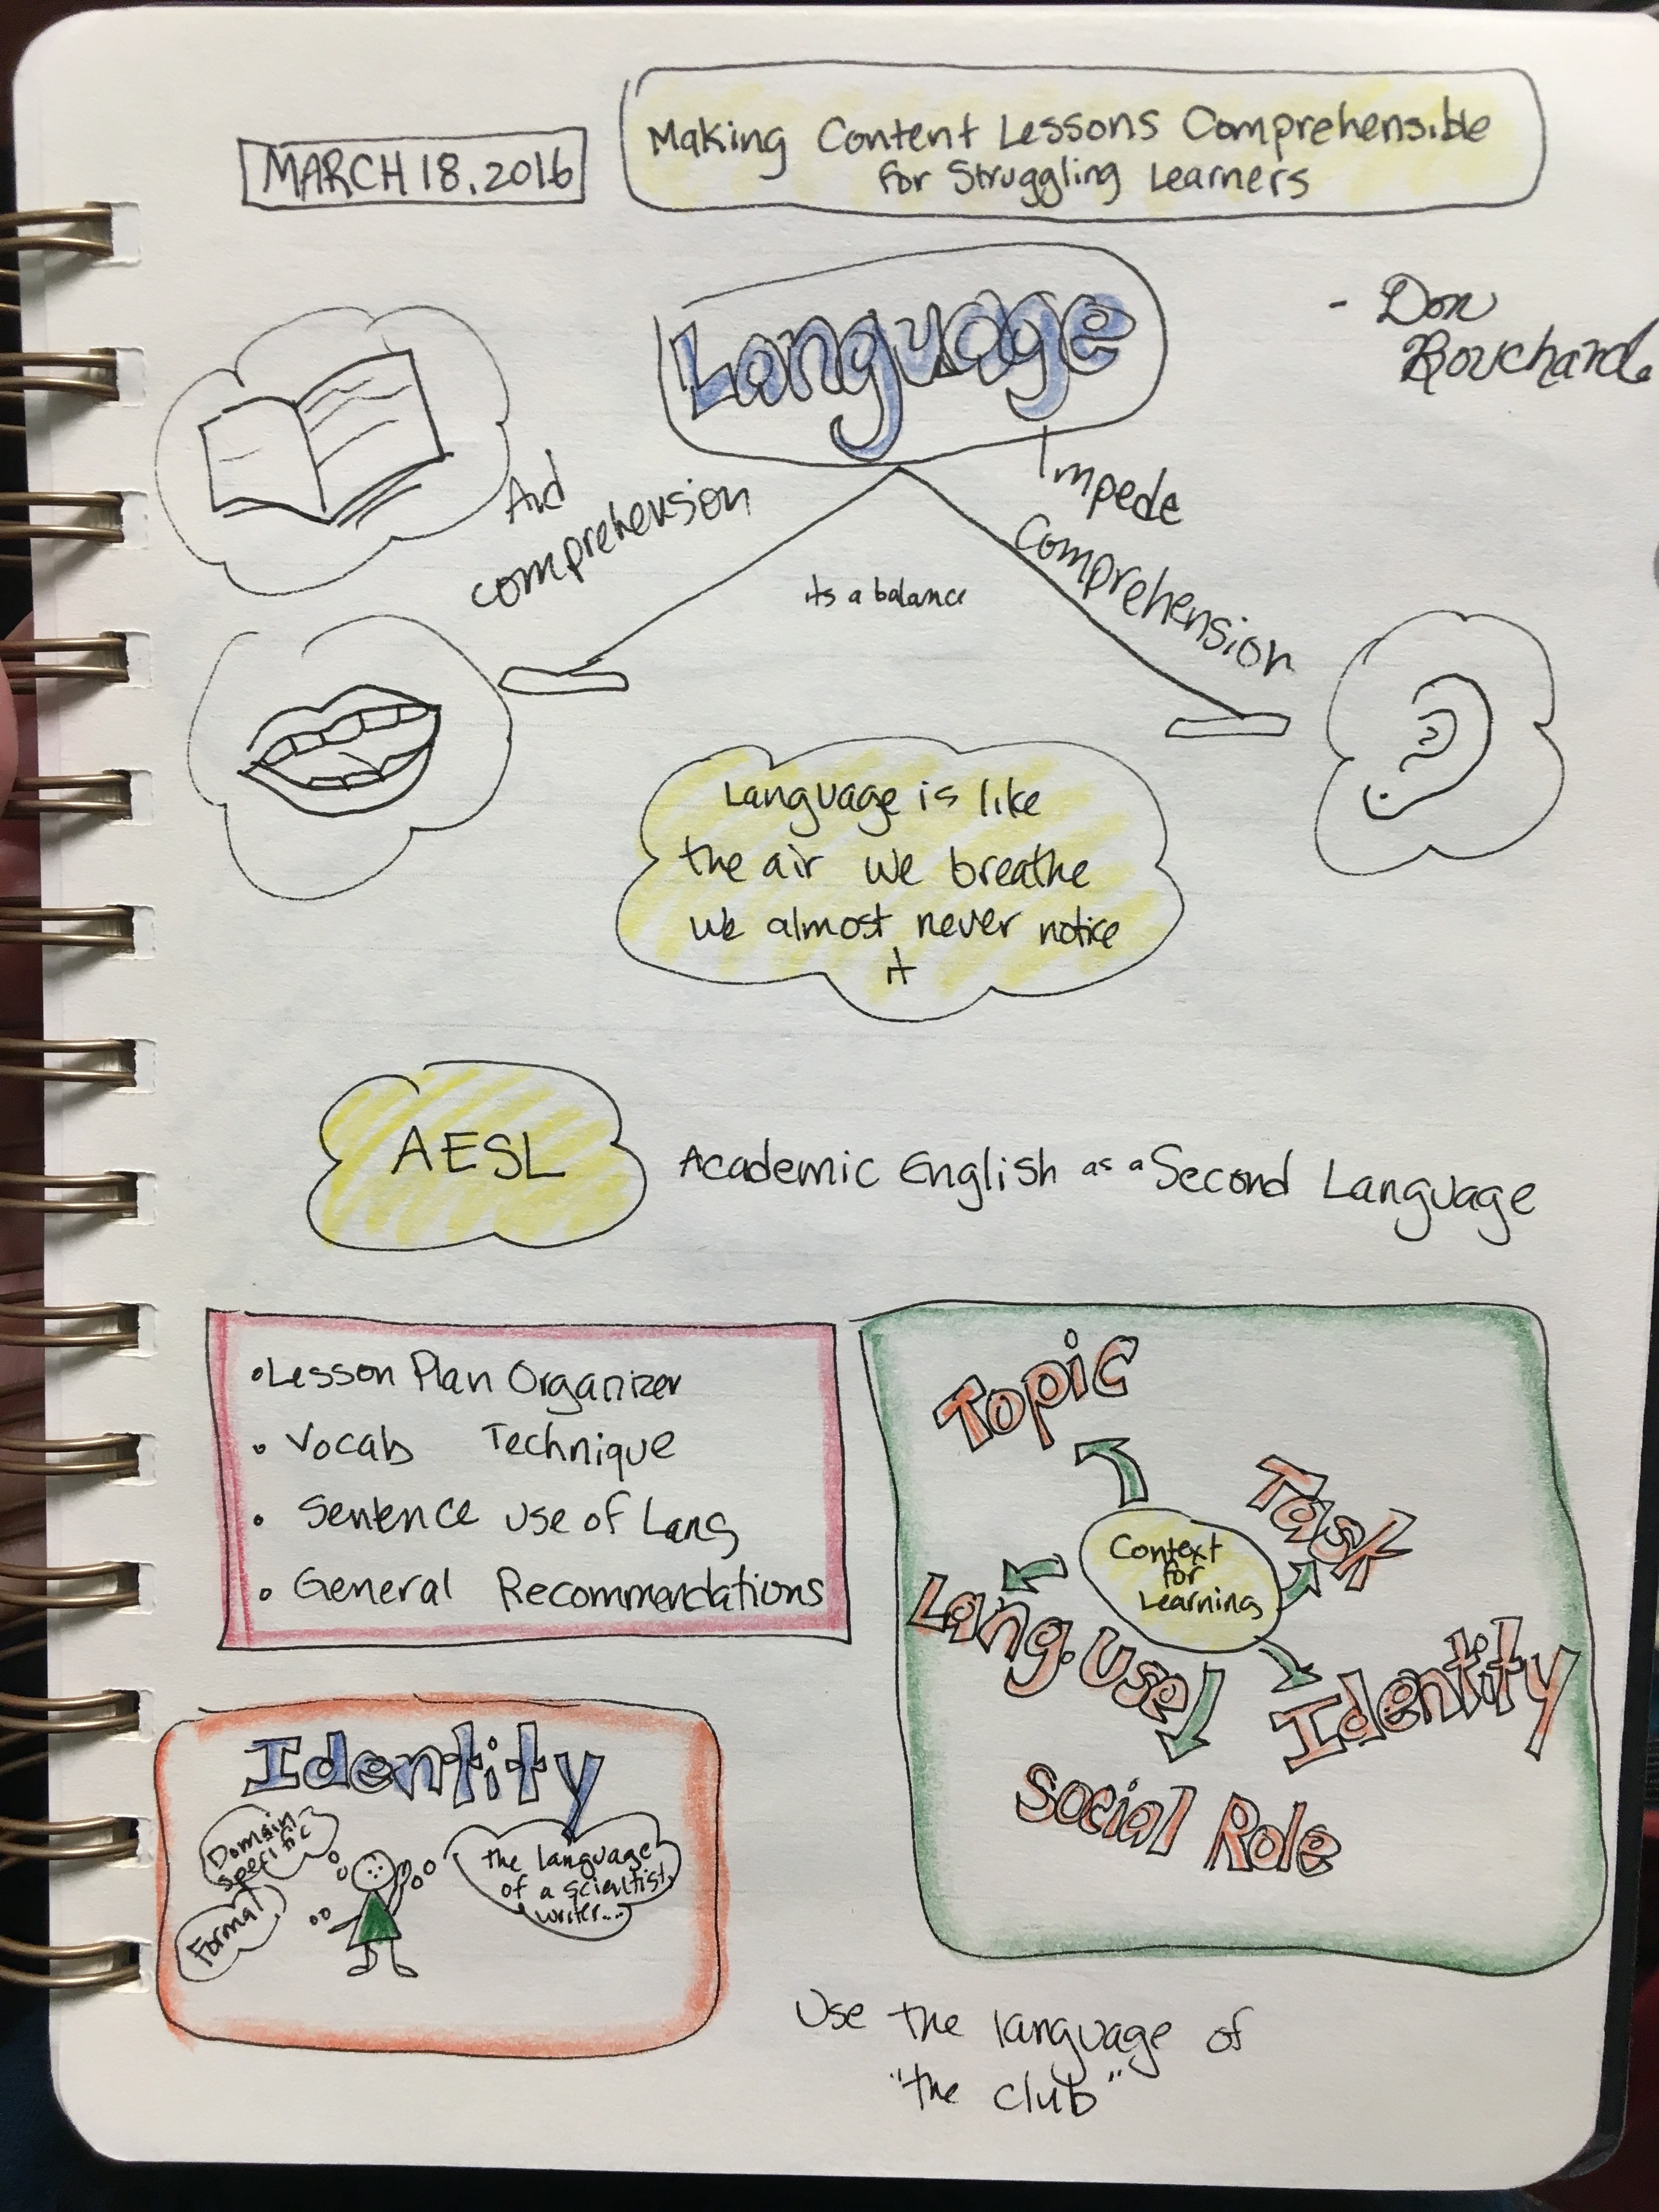 MARCH 18, 2016
Making Content Lessons Comprehensible
for Struggling Learners
- Don
Bouchard
Language
Aid
comprehension
Impede
Comprehension
its a balance
Language is like
the air we breathe
we almost never notice
it
AESL
Academic English as a Second Language
• Lesson Plan Organizer
• Vocab Technique
• Sentence use of Lang
• General Recommendations
Topic
Task
Context
for
Learning
Lang. Use
Identity
Social Role
Identity
Domain
specific
Formal
the language
of a scientist,
writer...
Use the language of
"the club"